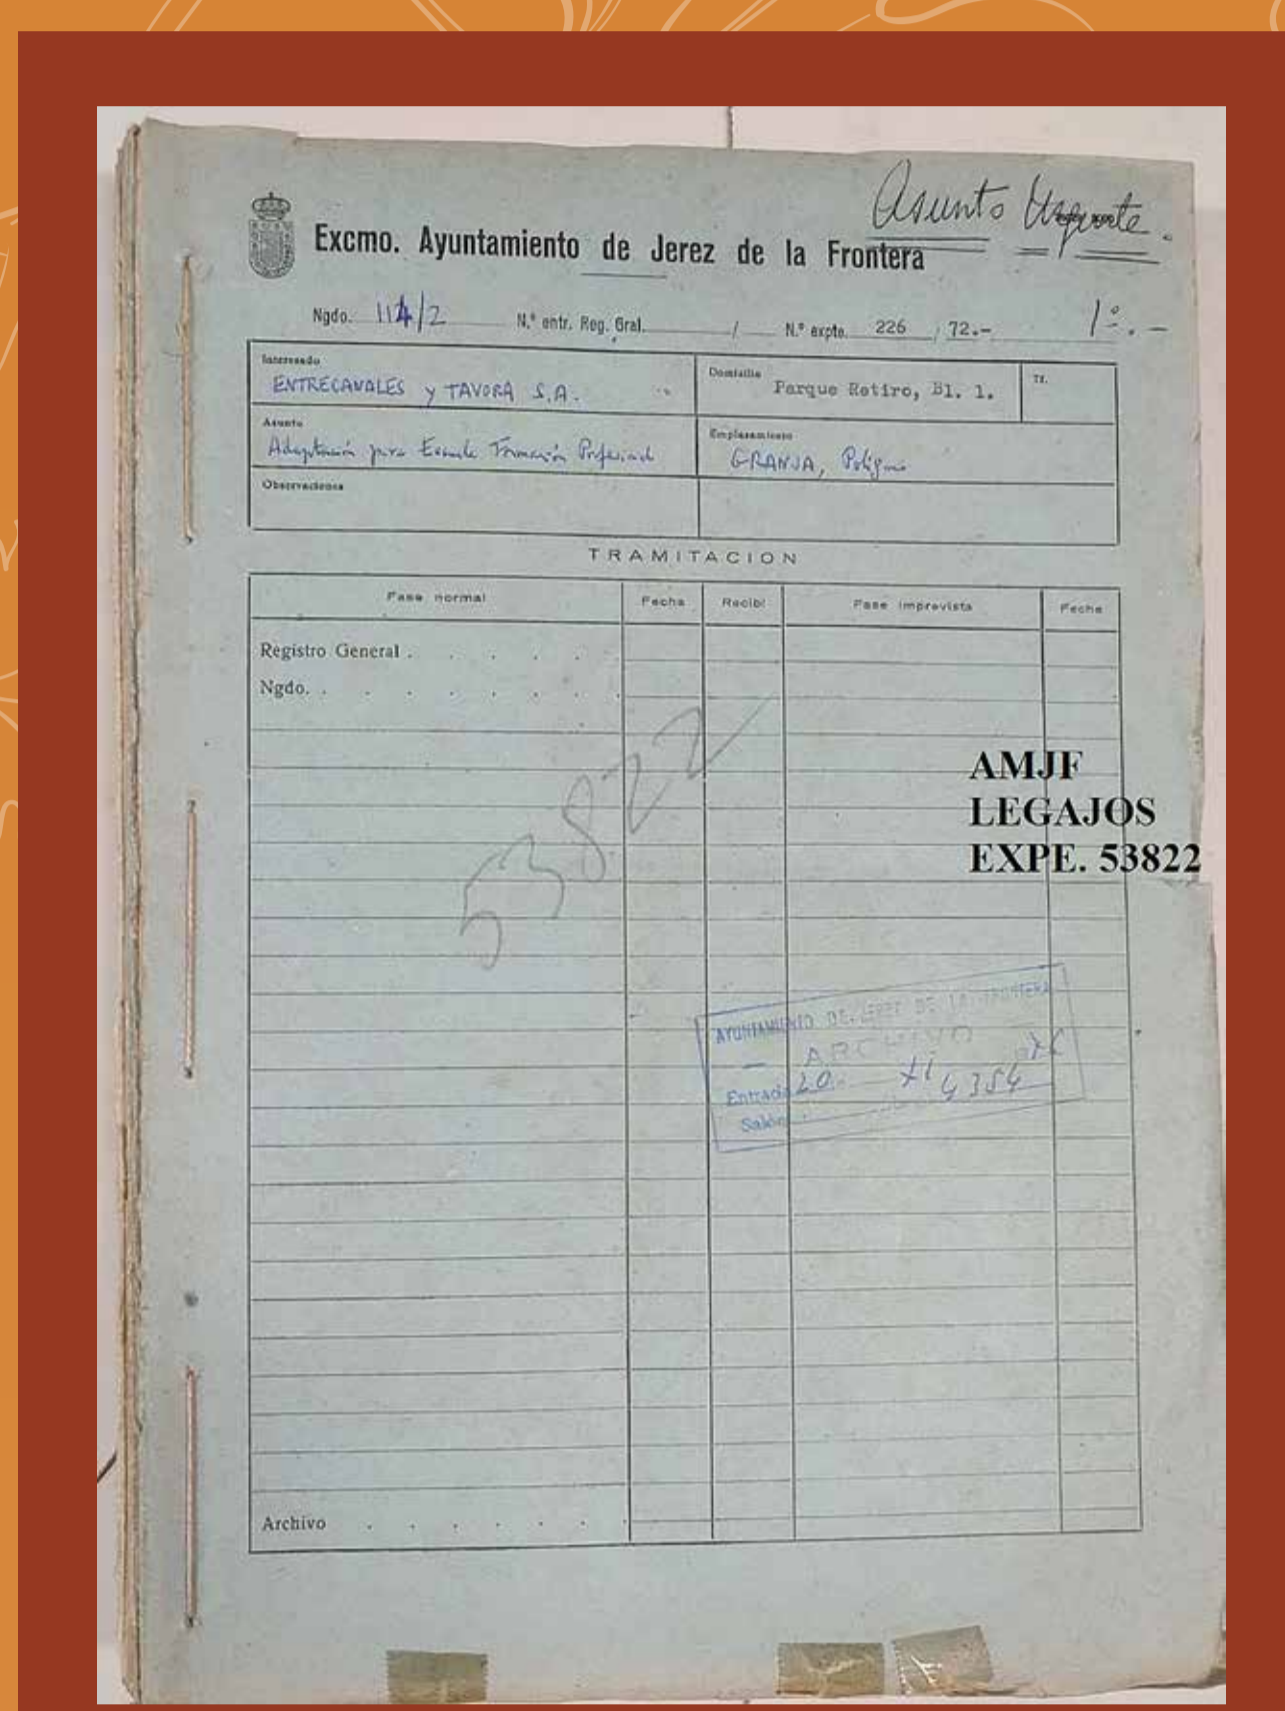 Asunto Urgente.
Excmo. Ayuntamiento de Jerez de la Frontera
Ngdo. 114/2 N.º entr. Reg. Gral. / N.º expte. 226 / 72.- 1º.-
Interesado
ENTRECANALES y TAVORA S.A.
Domicilio
Parque Retiro, Bl. 1.
Tf.
Asunto
Adaptación para Escuela Formación Profesional
Emplazamiento
GRANJA, Polígono
Observaciones
TRAMITACION
Fase normal Fecha Recibí Fase imprevista Fecha
Registro General . . . . .
Ngdo. . . . . . . . .
53822
AMJF
LEGAJOS
EXPE. 53822
AYUNTAMIENTO DE JEREZ DE LA FRONTERA
ARCHIVO
Entrada 20 XI 4354
Salón
Archivo . . . . . . .